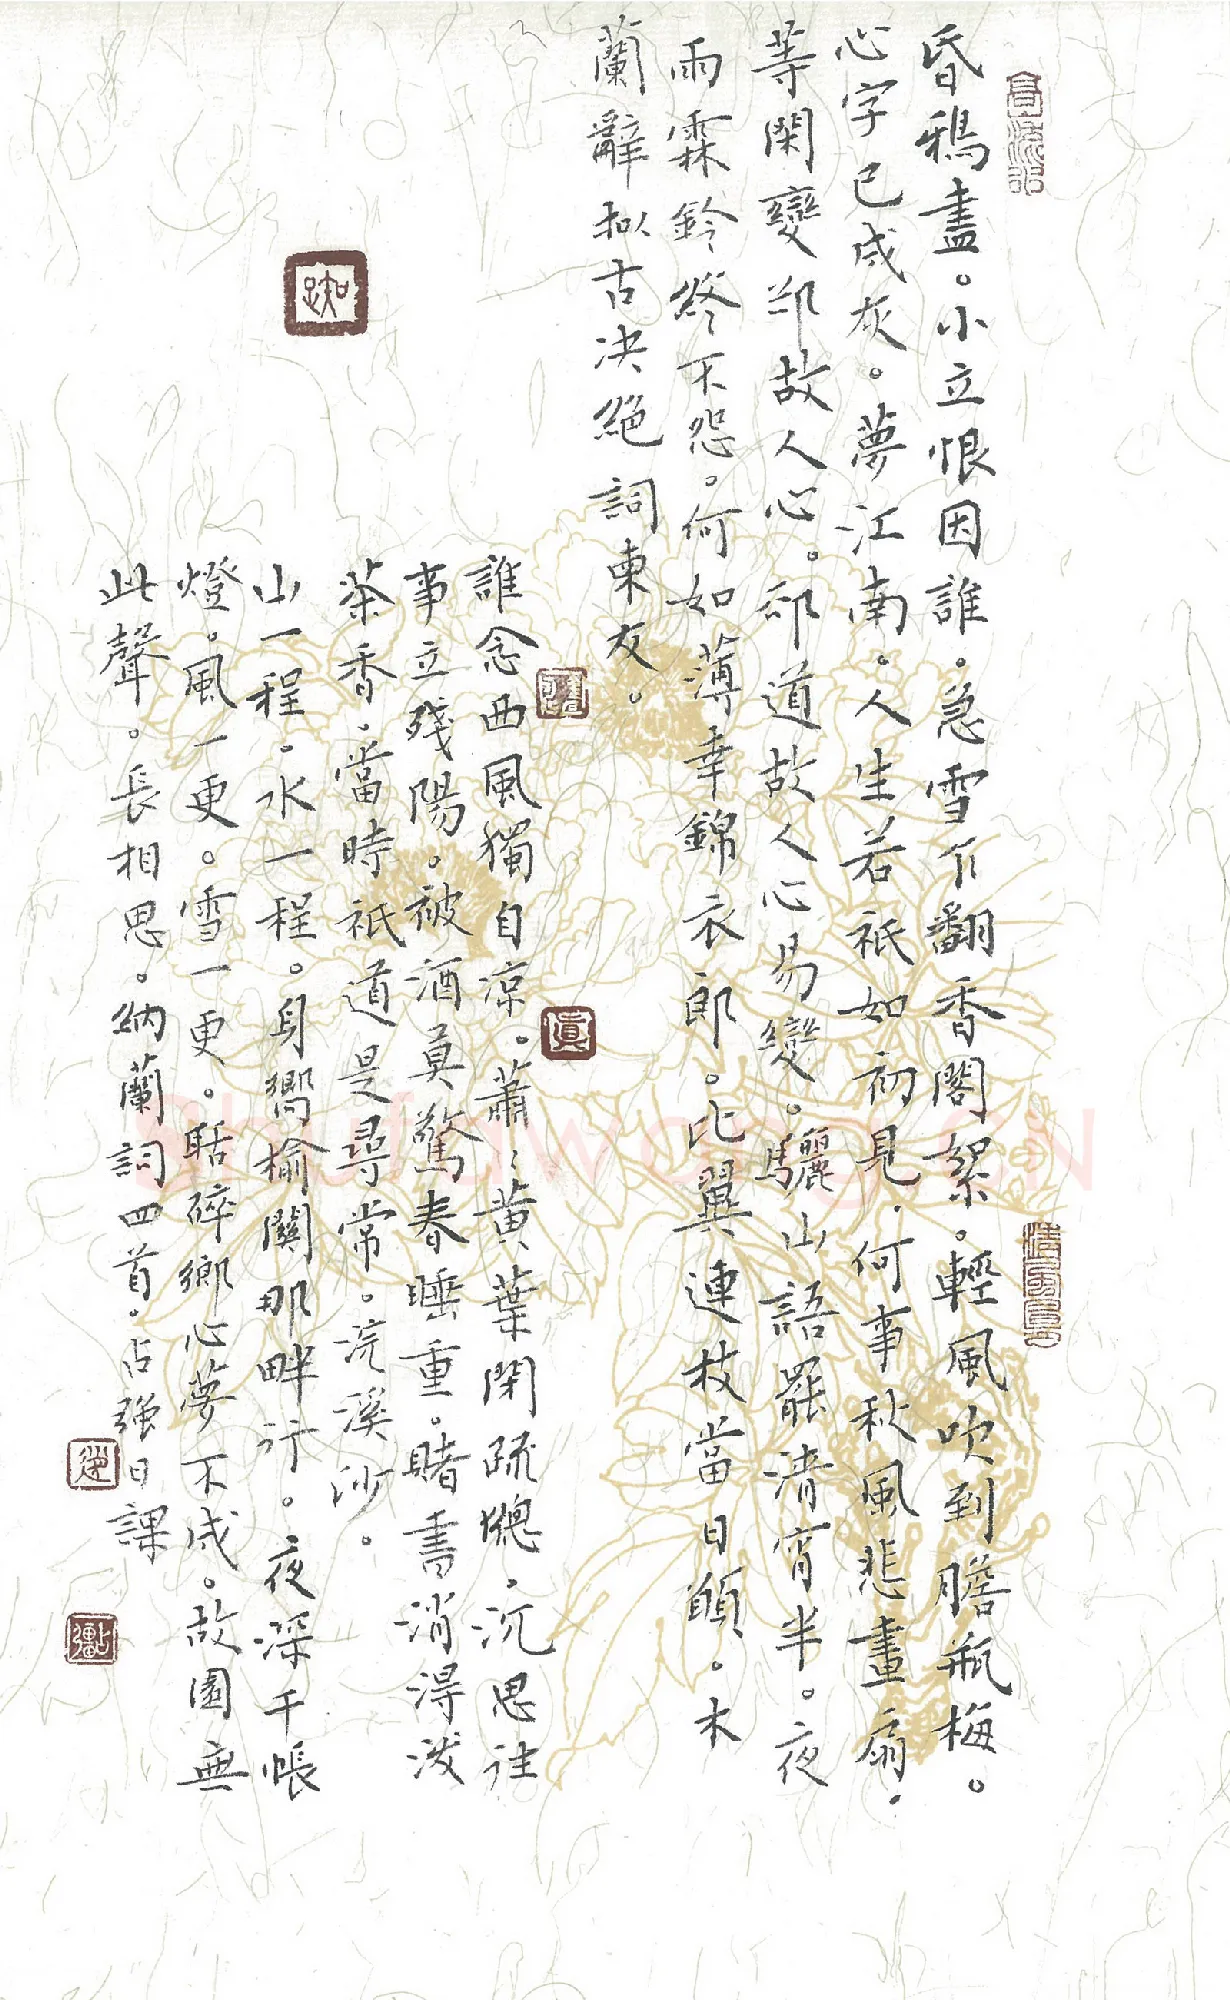 昏鴉盡。小立恨因誰。急雪乍翻香閣絮。輕風吹到膽瓶梅。
心字已成灰。夢江南。人生若衹如初見、何事秋風悲畫扇、
等閑變卻故人心。卻道故人心易變。驪山語罷清宵半。夜
雨霖鈴終不怨。何如薄幸錦衣郎。比翼連枝當日願。木
蘭辭擬古決絕詞柬友。
誰念西風獨自凉。蕭〻黄葉閉疏窗、沉思往
事立殘陽。被酒莫驚春睡重。賭書消得潑
茶香、當時衹道是尋常。浣溪沙。
山一程、水一程。身嚮榆關那畔行。夜深千帳
燈。風一更。雪一更。聒碎鄉心夢不成。故園無
此聲。長相思。納蘭詞四首。占強日課
Shufawang.CN